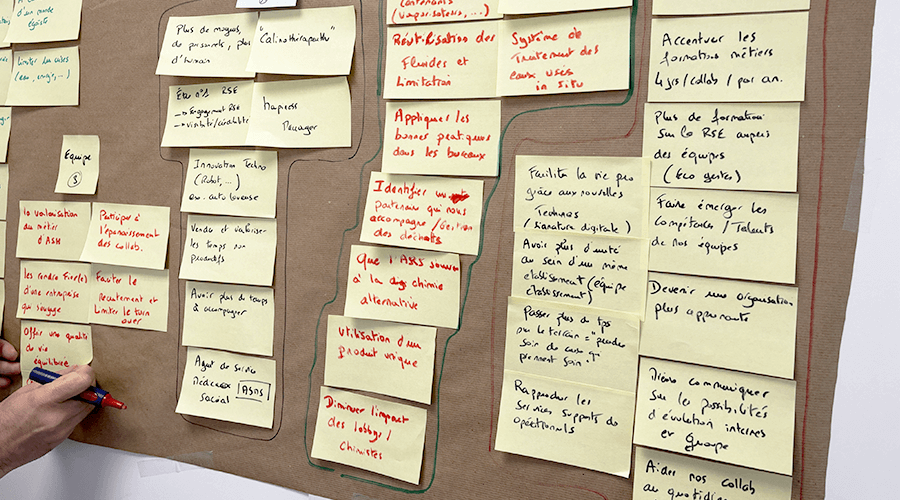 égoïste
Limiter les
(eau, énergie,...)
Equipe
③
la valorisation
du métier
d'ASH
Participer à
l'épanouissement
des collab.
les rendre Fier(e)
d'une entreprise
qui
Faciliter le
Recrutement et
Limiter le turn
over
Offrir une qualité
de vie
équilibrée
Plus de
de présentiel, plus
d'humain
"Calinothérapeuthe"
Être n°1 RSE
→ Engagement RSE
→ visibilité/crédibilité
Hapiness
Manager
Innovation Techno
(Robot, ...)
ou auto laveuse
Vendre et valoriser
les temps non
productifs
Avoir plus de temps
à accompagner
Agent de service
Médicaux
social ASMS
Contenants
(vaporisateurs, ...)
Réutilisation des
Fluides et
Limitation
Système de
Traitement des
eaux usés
in situ
Appliquer les
bonnes pratiques
dans les bureaux
Identifier un
partenaire qui nous
accompagne / Gestion
des déchets
Que l'ASH
à la chimie
alternative
Utilisation d'un
Produit unique
Diminuer l'impact
des lobbys /
Chimistes
Facilite la vie pro
grâce aux nouvelles
Technos
(signature digitale)
Avoir plus d'unité
au sein d'un même
etablissement (équipe
etablissement)
Passer plus de tps
sur le terrain = "prendre
soin de ceux qui
prennent soin"
Rapprocher les
Services supports de
opérationnels
Accentuer les
formations métiers
4jrs/collab / par an.
Plus de formation
sur la RSE auprès
des équipes
(Eco gestes)
Faire émerger les
Compétences / Talents
de nos équipes
Devenir une organisation
plus apprenante
communiquer
sur les possibilités
d'évolution internes
en groupe
Aider nos collab
au quotidien